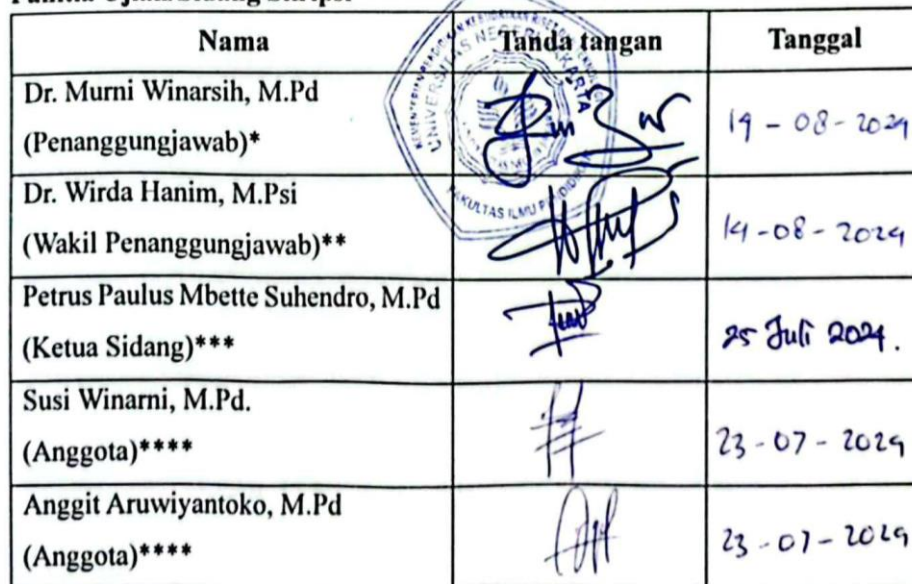 Nama Tanda tangan Tanggal
Dr. Murni Winarsih, M.Pd
(Penanggungjawab)*
19 - 08 - 2024
Dr. Wirda Hanim, M.Psi
(Wakil Penanggungjawab)**
14 - 08 - 2024
Petrus Paulus Mbette Suhendro, M.Pd
(Ketua Sidang)***
25 Juli 2024.
Susi Winarni, M.Pd.
(Anggota)****
23 - 07 - 2024
Anggit Aruwiyantoko, M.Pd
(Anggota)****
23 - 07 - 2024
UNIVERSITAS NEGERI JAKARTA
FAKULTAS ILMU